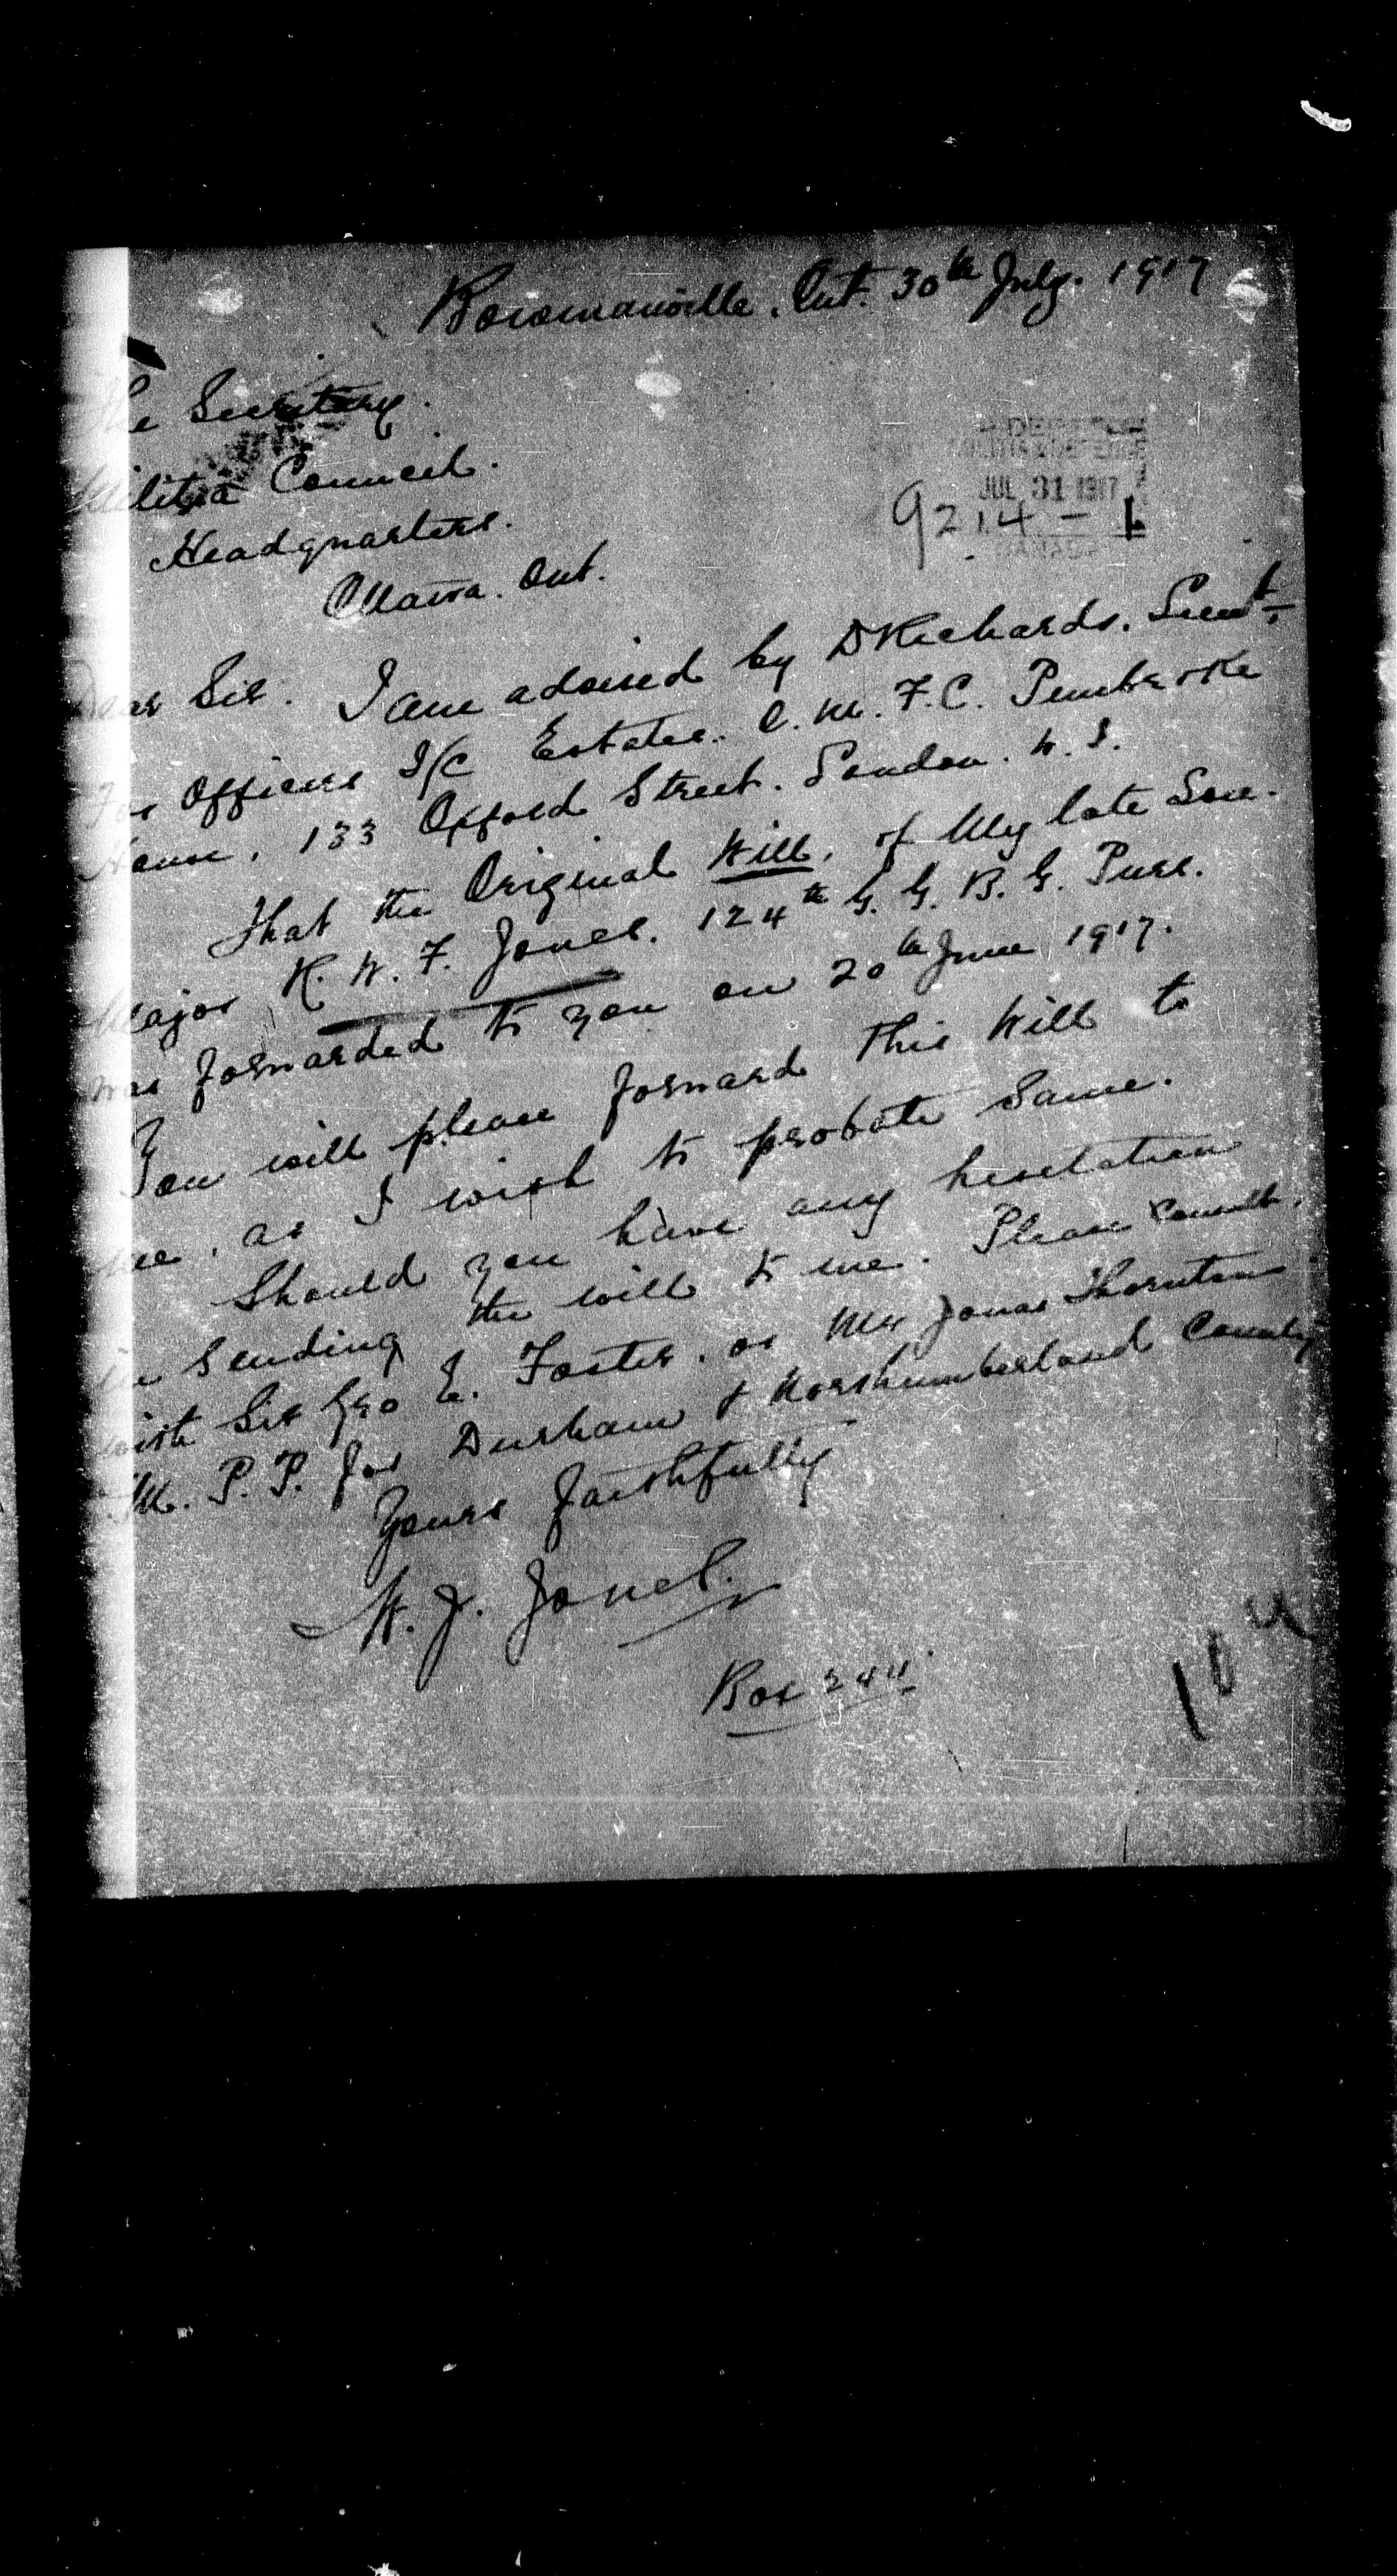 Bowmanville. Ont. 30th July. 1917
The Secretary.
Militia Council.
Headquarters.
Ottawa. Ont.
DEPT
MILITIA & DEFENCE
JUL 31 1917
9214 - 1
CANADA
Dear Sir. I am advised by D Richards. Lieut.
For Officer I/C Estates. O. M. F. C. Pembroke
House, 133 Oxford Street. London. W. I.
That the Original Will, of My late Son.
Major K. W. F. Jones. 124th G. G. B. G. Purs.
was forwarded to you on 20th June 1917.
You will please forward this Will to
me, as I wish to probate same.
Should you have any hesitation
in sending the will to me. Please consult.
with Sir Geo E. Foster. or Mr Jonas Thornton
M. P. P. for Durham & Northumberland County
Yours faithfully
W. J. Jones.
Box 244